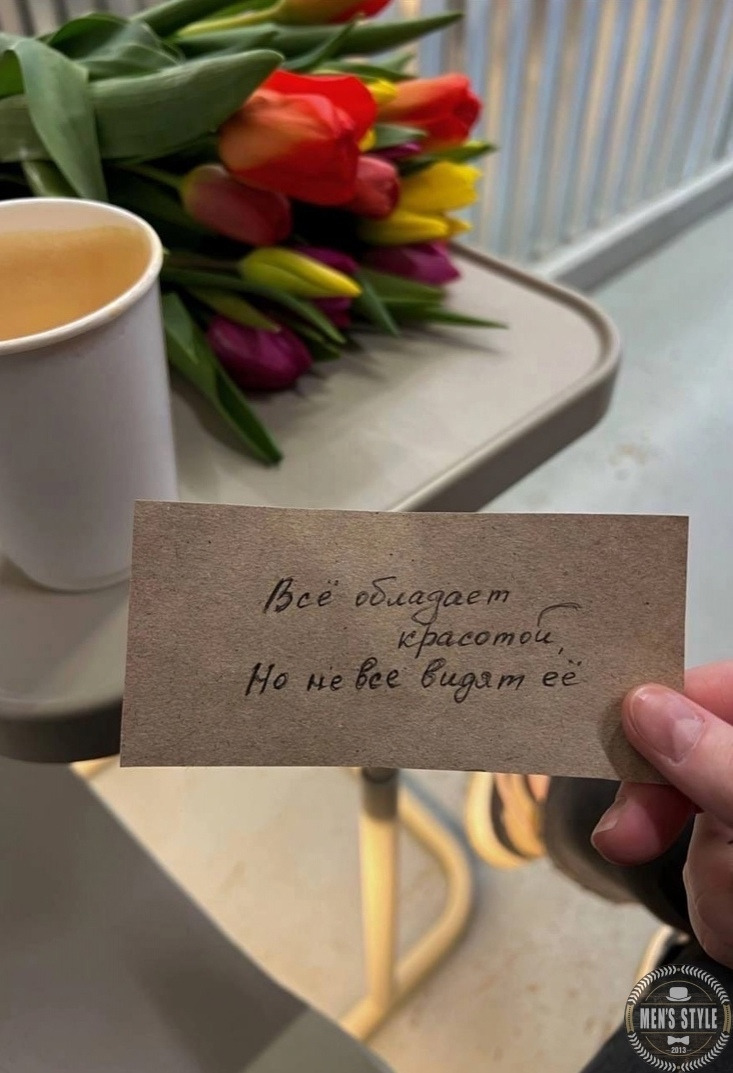 Всё обладает
красотой,
Но не все видят её
MEN'S STYLE
2013